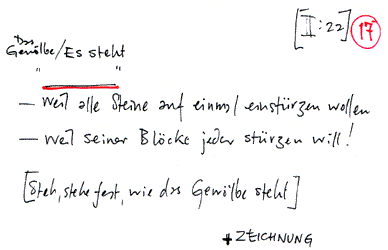 [II:22] 17
Das
Gewölbe/Es steht
" "
– weil alle Steine auf einmal einstürzen wollen
– weil seiner Blöcke jeder stürzen will!
[Steh, stehe fest, wie das Gewölbe steht]
+ ZEICHNUNG